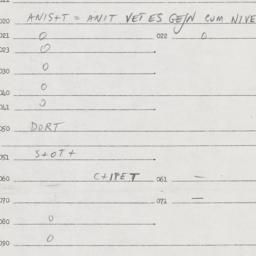 020 ANIS+T = ANIT VET ES GEJN CUM NIVE
021 0 022 0
023 0
030 0
040 0
041 0
050 DORT
051 S+OT+
060 C+IPET 061 —
070 071 —
080 0
090 0